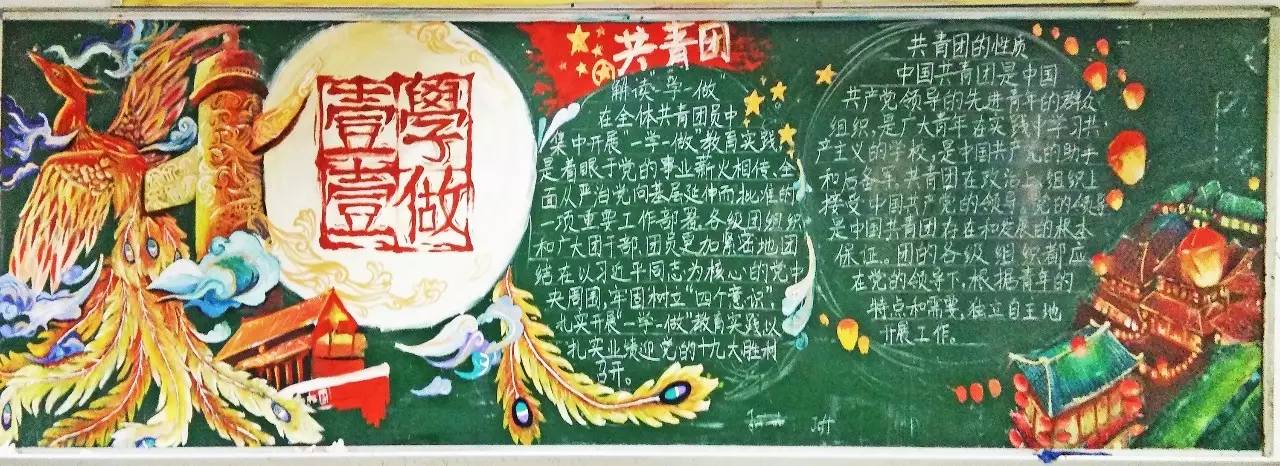 學做
壹壹
共青团
解读“一学一做”
在全体共青团员中
集中开展“一学一做”教育实践,
是着眼于党的事业薪火相传、全
面从严治党向基层延伸而批准的
一项重要工作部署。各级团组织
和广大团干部、团员更加紧密地团
结在以习近平同志为核心的党中
央周围,牢固树立“四个意识”
扎实开展“一学一做”教育实践,以
扎实业绩迎党的十九大胜利
召开。
共青团的性质
中国共青团是中国
共产党领导的先进青年的群众
组织,是广大青年在实践中学习共
产主义的学校,是中国共产党的助手
和后备军。共青团在政治上、组织上
接受中国共产党的领导,党的领导
是中国共青团存在和发展的根本
保证。团的各级组织都应
在党的领导下,根据青年的
特点和需要,独立自主地
开展工作。